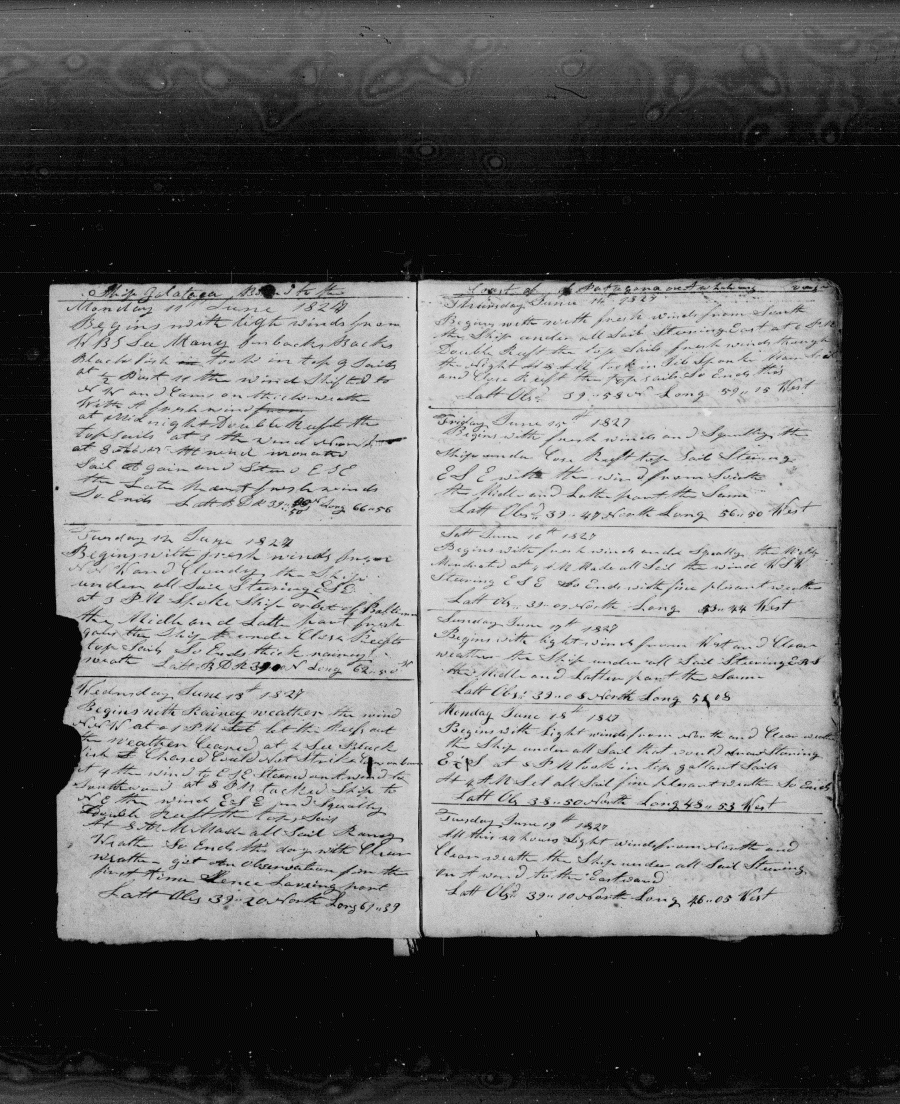 Ship Galatea
Monday 11 June 1827
Begins with high winds from
W B S See Many finbacks &
Blackfish took in top g Sails
at ½ Past 11 the wind Shifted to
N W and Came on thick weath
With A fresh wind
at Midnight Double Reeft the
top sails at 3 the wind
at 8 the wind
Sail again and Steard E S E
the Later Part fresh winds
So Ends Latt B D R 39 Long 66 56
Tuesday 12 June 1827
Begins with fresh winds from
N W and Cloudy the Ship
under all Sail Steering E S E
at 3 P M Spoke Ship of
the Midle and Later part fresh
gales the Ship under Close Reeft
top Sails So Ends thick rainey
weath Latt B D R 39 00 N Long 62 50 W
Wedensday June 13th 1827
Begins with Rainey weather the wind
N N W at 1 P M let the Reefs out
the weather Cleared at 2 See Black
fish & Chased Could Not Strike
at 4 the wind to E S E Steered
Southward at 8 P M tacked Ship to
N E the wind E S E and Squally
Double Reeft the top Sails
At 8 A M Made all Sail Rainey
Weath So Ends the day with Clear
weather got An Observation for the
first time Sence Leaving port
Latt Obs 39 20 North Long 61 59
Coast of Patagona on A whaling voyage
Thursday June 14 1827
Begins with fresh winds from South
the Ship under all Sail Steering East at 6 P M
Double Reeft the top Sails fresh winds through
the Night at 8 A M took in Jib Spanker Main Sail
and Close Reeft the top sails So Ends this
Latt Obsd 39 58 No Long 59 15 West
Friday June 15th 1827
Begins with fresh winds and Squally the
Ship under Close Reeft top Sail Steering
E S E with the wind from South
the Midle and Latter part the Same
Latt Obsd 39 47 North Long 56 50 West
Satt June 16th 1827
Begins with fresh winds and Squally the Midle
Moderate at 4 A M Made all Sail the wind W S W
Steering E S E So Ends with fine plesant weather
Latt Obs 39 09 North Long 53 44 West
Sunday June 17th 1827
Begins with light winds from West and Clear
weather the Ship under all Sail Steering E B S
the Midle and Latter part the Same
Latt Obs 39 08 North Long 51 08
Monday June 18th 1827
Begins with Light winds from North and Clear weath
the Ship under all Sail that would draw Steering
E B S at 8 P M took in top gallant Sails
At 4 A M Set all Sail fine plesant weather So Ends
Latt Obs 38 50 North Long 48 53 West
Tuesday June 19th 1827
All this 24 hours Light winds from North and
Clear weath the Ship under all Sail Steering
to the Eastward
Latt Obsd 39 10 North Long 46 05 West